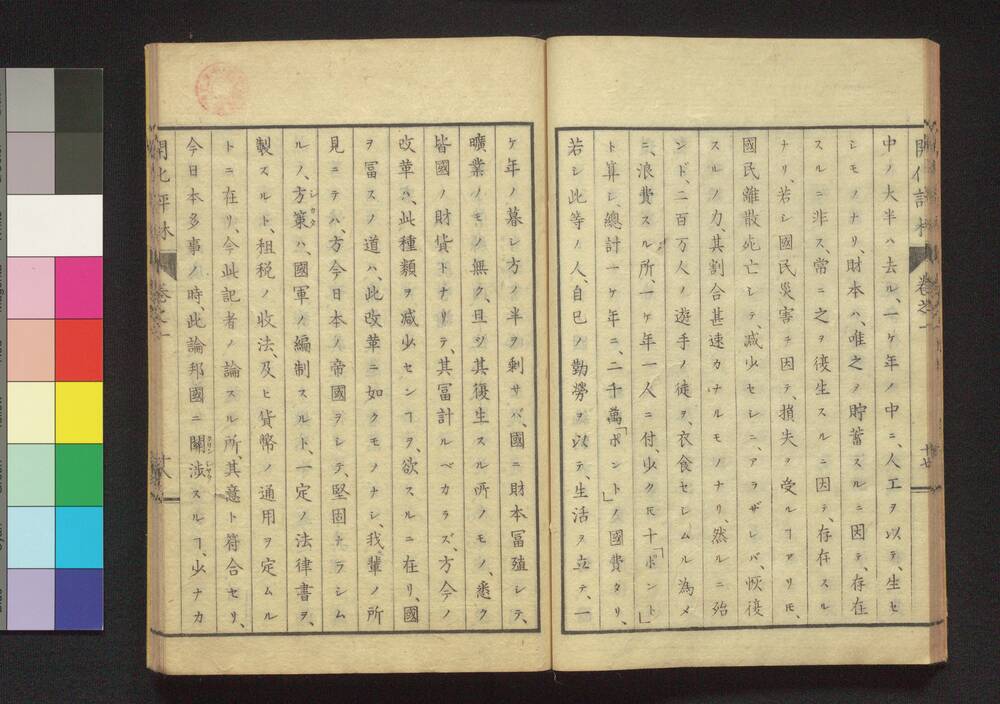 開化評林　卷之一　十七
中ノ大半ハ去ル、一ケ年ノ中ニ、人工ヲ以テ、生セ
シモノナリ、財本ハ、唯之ヲ貯蓄スルニ因テ、存在
スルニ非ス、常ニ之ヲ復生スルニ因テ、存在スル
ナリ、若シ國民災害ヲ因テ、損失ヲ受ルヿアリ𪜈、
國民離散死亡シテ、減少セシニ、アラザレバ、恢復
スルノ力、其割合甚速カナルモノナリ、然ルニ殆
ンド、二百万人ノ遊手ノ徒ヲ、衣食セシムル為メ
ニ、浪費スル所、一ケ年一人ニ付、少ク𪜈十「ポント」
ト算シ、總計一ケ年ニ、二千萬「ポント」ノ國費タリ、
若シ此等ノ人、自己ノ勤勞ヲ以テ、生活ヲ立テ、一
ケ年ノ暮レ方ノ半ヲ剩サバ、國ニ財本冨殖シテ、
曠業ノモノ無ク、且ツ其復生スル所ノモノ、悉ク
皆國ノ財貨トナリテ、其冨計ルベカラズ、方今ノ
改革ハ、此種類ヲ减少センヿヲ、欲スルニ在リ、國
ヲ冨スノ道ハ、此改革ニ如クモノナシ、我輩ノ所
見ニテハ、方今日本ノ帝國ヲシテ、堅固ナラシム
ルノ、方策ハ、國軍ノ編制スルト、一定ノ法律書ヲ、
製スルト、租税ノ收法、及ヒ貨幣ノ通用ヲ定ムル
トニ在リ、今此記者ノ論スル所、其意ト符合セリ、
今日本多事ノ時、此論邦國ニ關渉スルヿ、少ナカ
開化評林　卷之一　十八